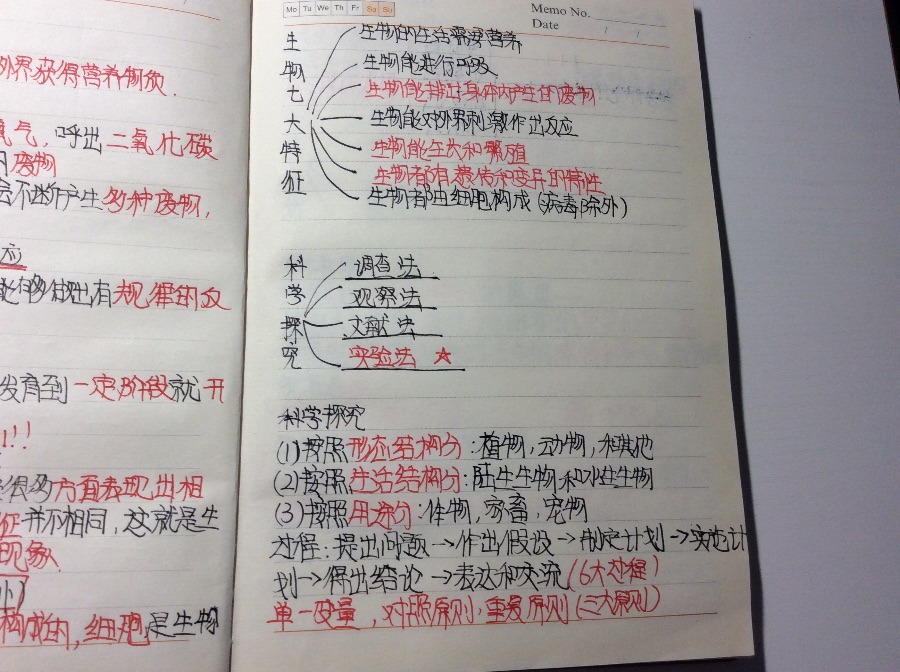 外界获得营养物质.
氧气，呼出二氧化碳
废物
会不断产生多种废物，
应
能够做出有规律的反
发育到一定阶段就开
!!!
很多方面表现出相
征并不相同，这就是生
现象.
构成的，细胞是生物
Mo Tu We Th Fr Sa Su
Memo No.
Date / /
生物七大特征
生物的生活需要营养
生物能进行呼吸
生物能排出身体内产生的废物
生物能对外界刺激作出反应
生物能生长和繁殖
生物都有遗传和变异的特性
生物都由细胞构成(病毒除外)
科学探究
调查法
观察法
文献法
实验法 ☆
科学探究
(1)按照形态结构分：植物，动物，和其他
(2)按照生活结构分：陆生生物和水生生物
(3)按照用途分：作物，家畜，宠物
过程：提出问题→作出假设→制定计划→实施计
划→得出结论→表达和交流(6大过程)
单一变量，对照原则，重复原则(三大原则)